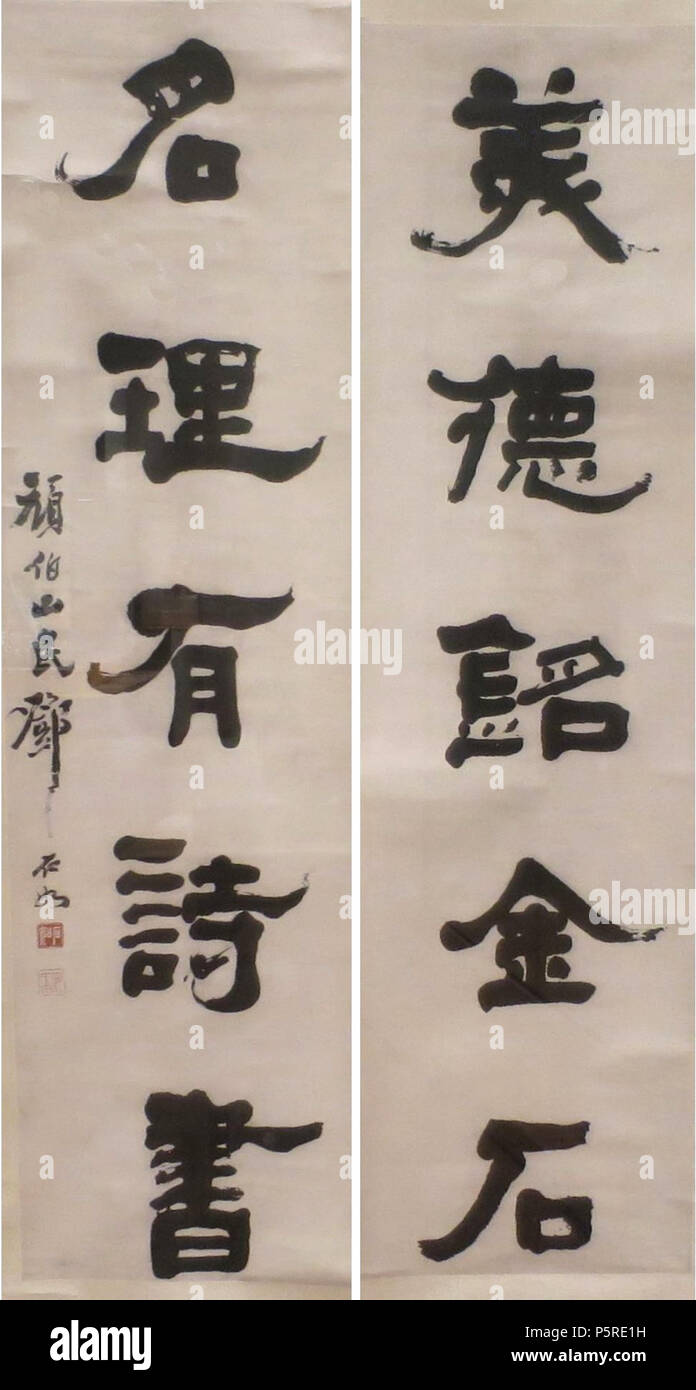 美德銘金石
名理有詩書
頑伯山民鄧石如
alamy
alamy
alamy
alamy
Image ID: P5RE1H
www.alamy.com